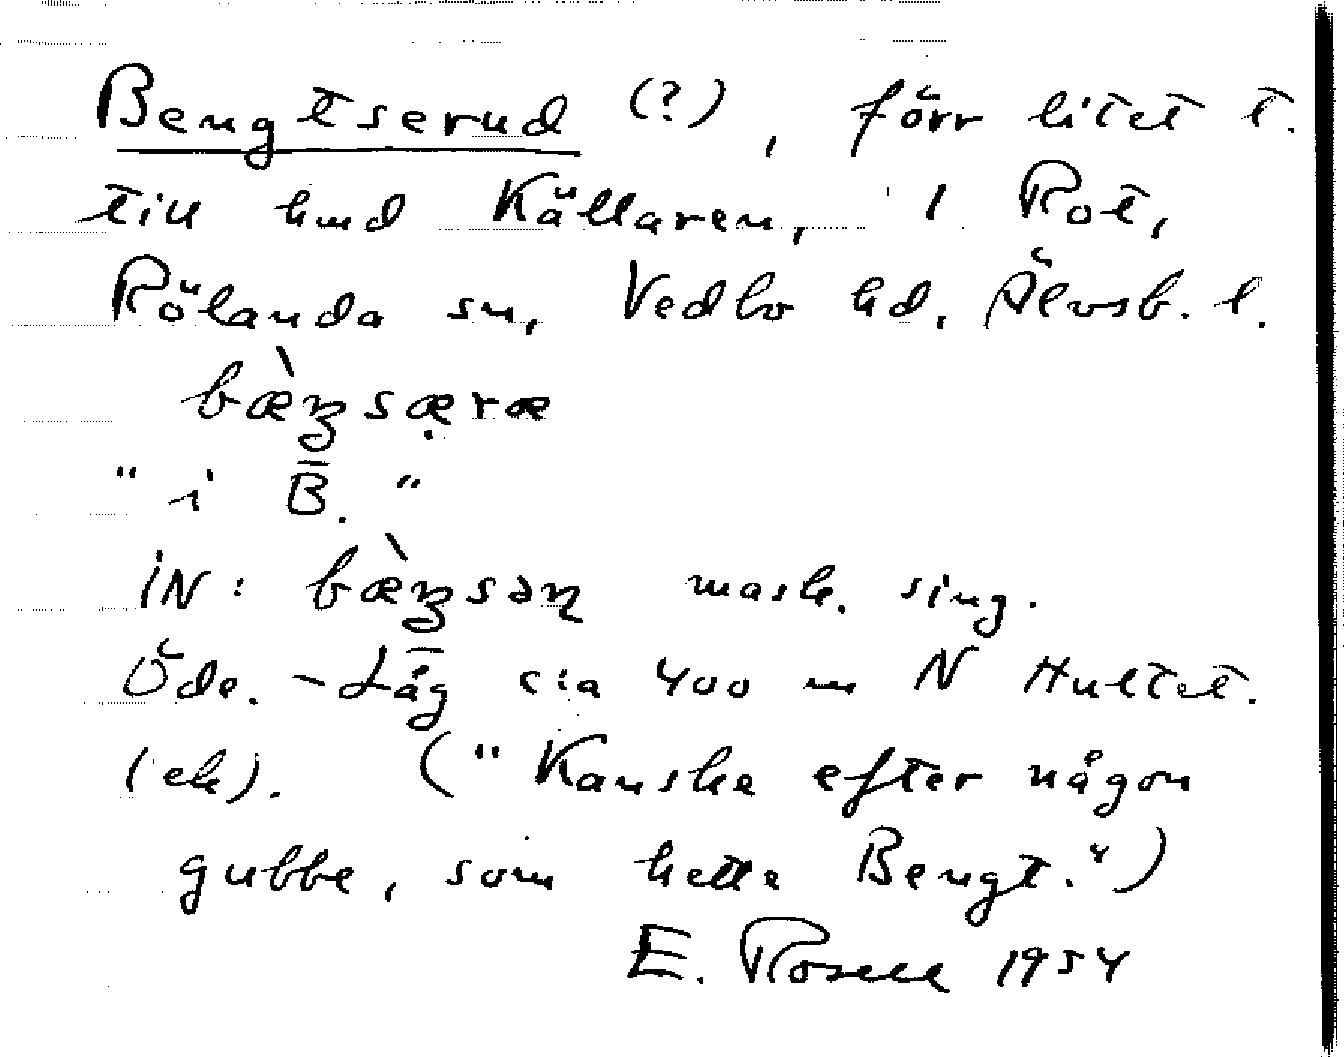 Bengtserud (?), förr litet t.
till hmd Källaren, i Rot,
Rölanda sn, Vedbo hd, Älvsb. l.
bæ̀ŋsæ̣ræ
"i B."
iN: bæ̀ŋsən mask. sing.
Öde. – Låg c:a 400 m N Hultet.
(ek). ("Kanske efter någon
gubbe, som hette Bengt.")
E. Rosell 1954